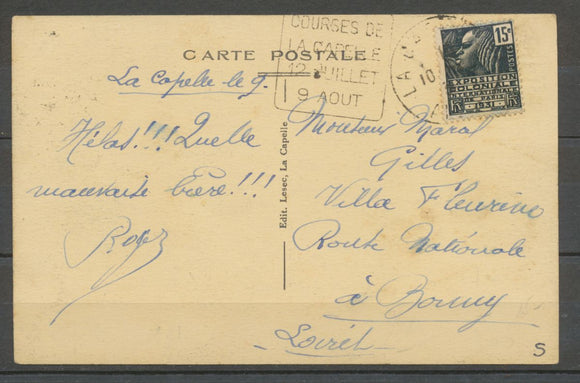 COURSES DE
LA CAPELLE
12 JUILLET
9 AOUT
CARTE POSTALE
LA C
10
15c
POSTES
EXPOSITION
COLONIALE
INTERNATIONALE
PARIS
1931
La Capelle le 9.
Hélas!!! Quelle
mauvaise bière!!!
Roger
Edit. Lesec, La Capelle
Monsieur Marcel
Gilles
Villa Fleurine
Route Nationale
à Bonny
Loiret
S